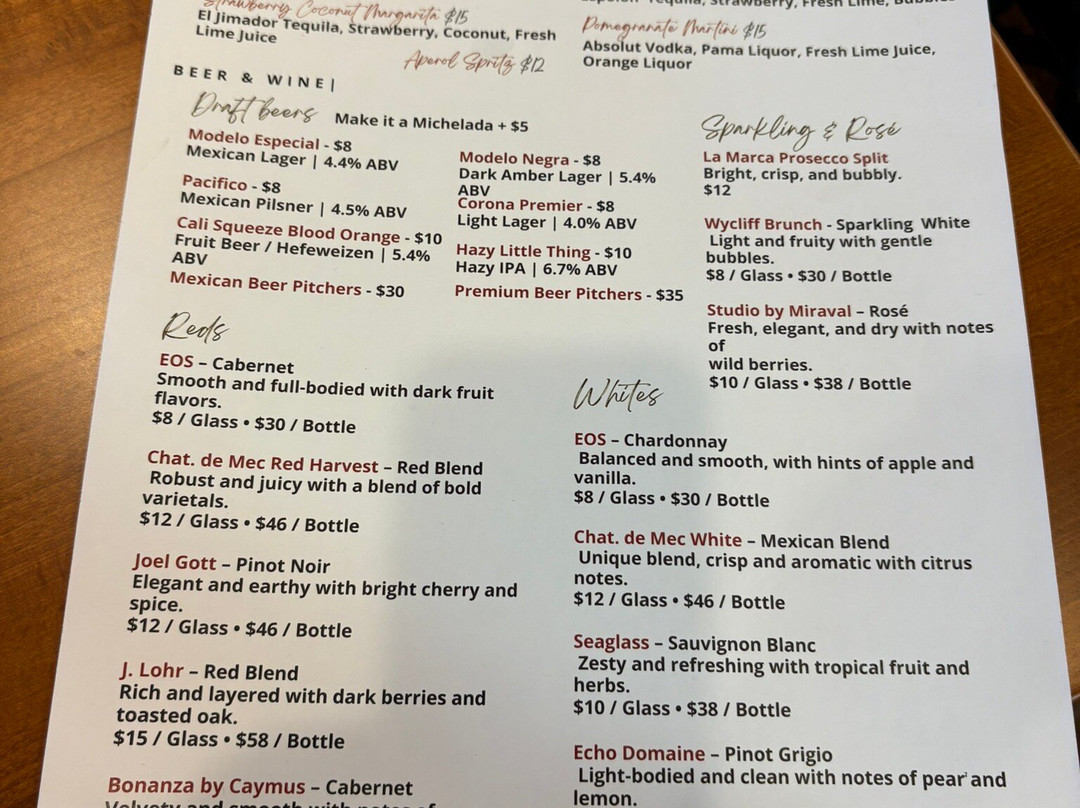 Strawberry Coconut Margarita $15
El Jimador Tequila, Strawberry, Coconut, Fresh
Lime Juice
Tequila, Strawberry, Fresh Lime, Bubbles
Pomegranate Martini $15
Absolut Vodka, Pama Liquor, Fresh Lime Juice,
Orange Liquor
Aperol Spritz $12
BEER & WINE|
Draft beers Make it a Michelada + $5
Modelo Especial - $8
Mexican Lager | 4.4% ABV
Pacifico - $8
Mexican Pilsner | 4.5% ABV
Cali Squeeze Blood Orange - $10
Fruit Beer / Hefeweizen | 5.4%
ABV
Mexican Beer Pitchers - $30
Modelo Negra - $8
Dark Amber Lager | 5.4%
ABV
Corona Premier - $8
Light Lager | 4.0% ABV
Hazy Little Thing - $10
Hazy IPA | 6.7% ABV
Premium Beer Pitchers - $35
Sparkling & Rosé
La Marca Prosecco Split
Bright, crisp, and bubbly.
$12
Wycliff Brunch - Sparkling White
Light and fruity with gentle
bubbles.
$8 / Glass • $30 / Bottle
Studio by Miraval – Rosé
Fresh, elegant, and dry with notes
of
wild berries.
$10 / Glass • $38 / Bottle
Reds
EOS – Cabernet
Smooth and full-bodied with dark fruit
flavors.
$8 / Glass • $30 / Bottle
Chat. de Mec Red Harvest – Red Blend
Robust and juicy with a blend of bold
varietals.
$12 / Glass • $46 / Bottle
Joel Gott – Pinot Noir
Elegant and earthy with bright cherry and
spice.
$12 / Glass • $46 / Bottle
J. Lohr – Red Blend
Rich and layered with dark berries and
toasted oak.
$15 / Glass • $58 / Bottle
Bonanza by Caymus – Cabernet
Velvety and smooth with notes of
Whites
EOS – Chardonnay
Balanced and smooth, with hints of apple and
vanilla.
$8 / Glass • $30 / Bottle
Chat. de Mec White – Mexican Blend
Unique blend, crisp and aromatic with citrus
notes.
$12 / Glass • $46 / Bottle
Seaglass – Sauvignon Blanc
Zesty and refreshing with tropical fruit and
herbs.
$10 / Glass • $38 / Bottle
Echo Domaine – Pinot Grigio
Light-bodied and clean with notes of pear and
lemon.